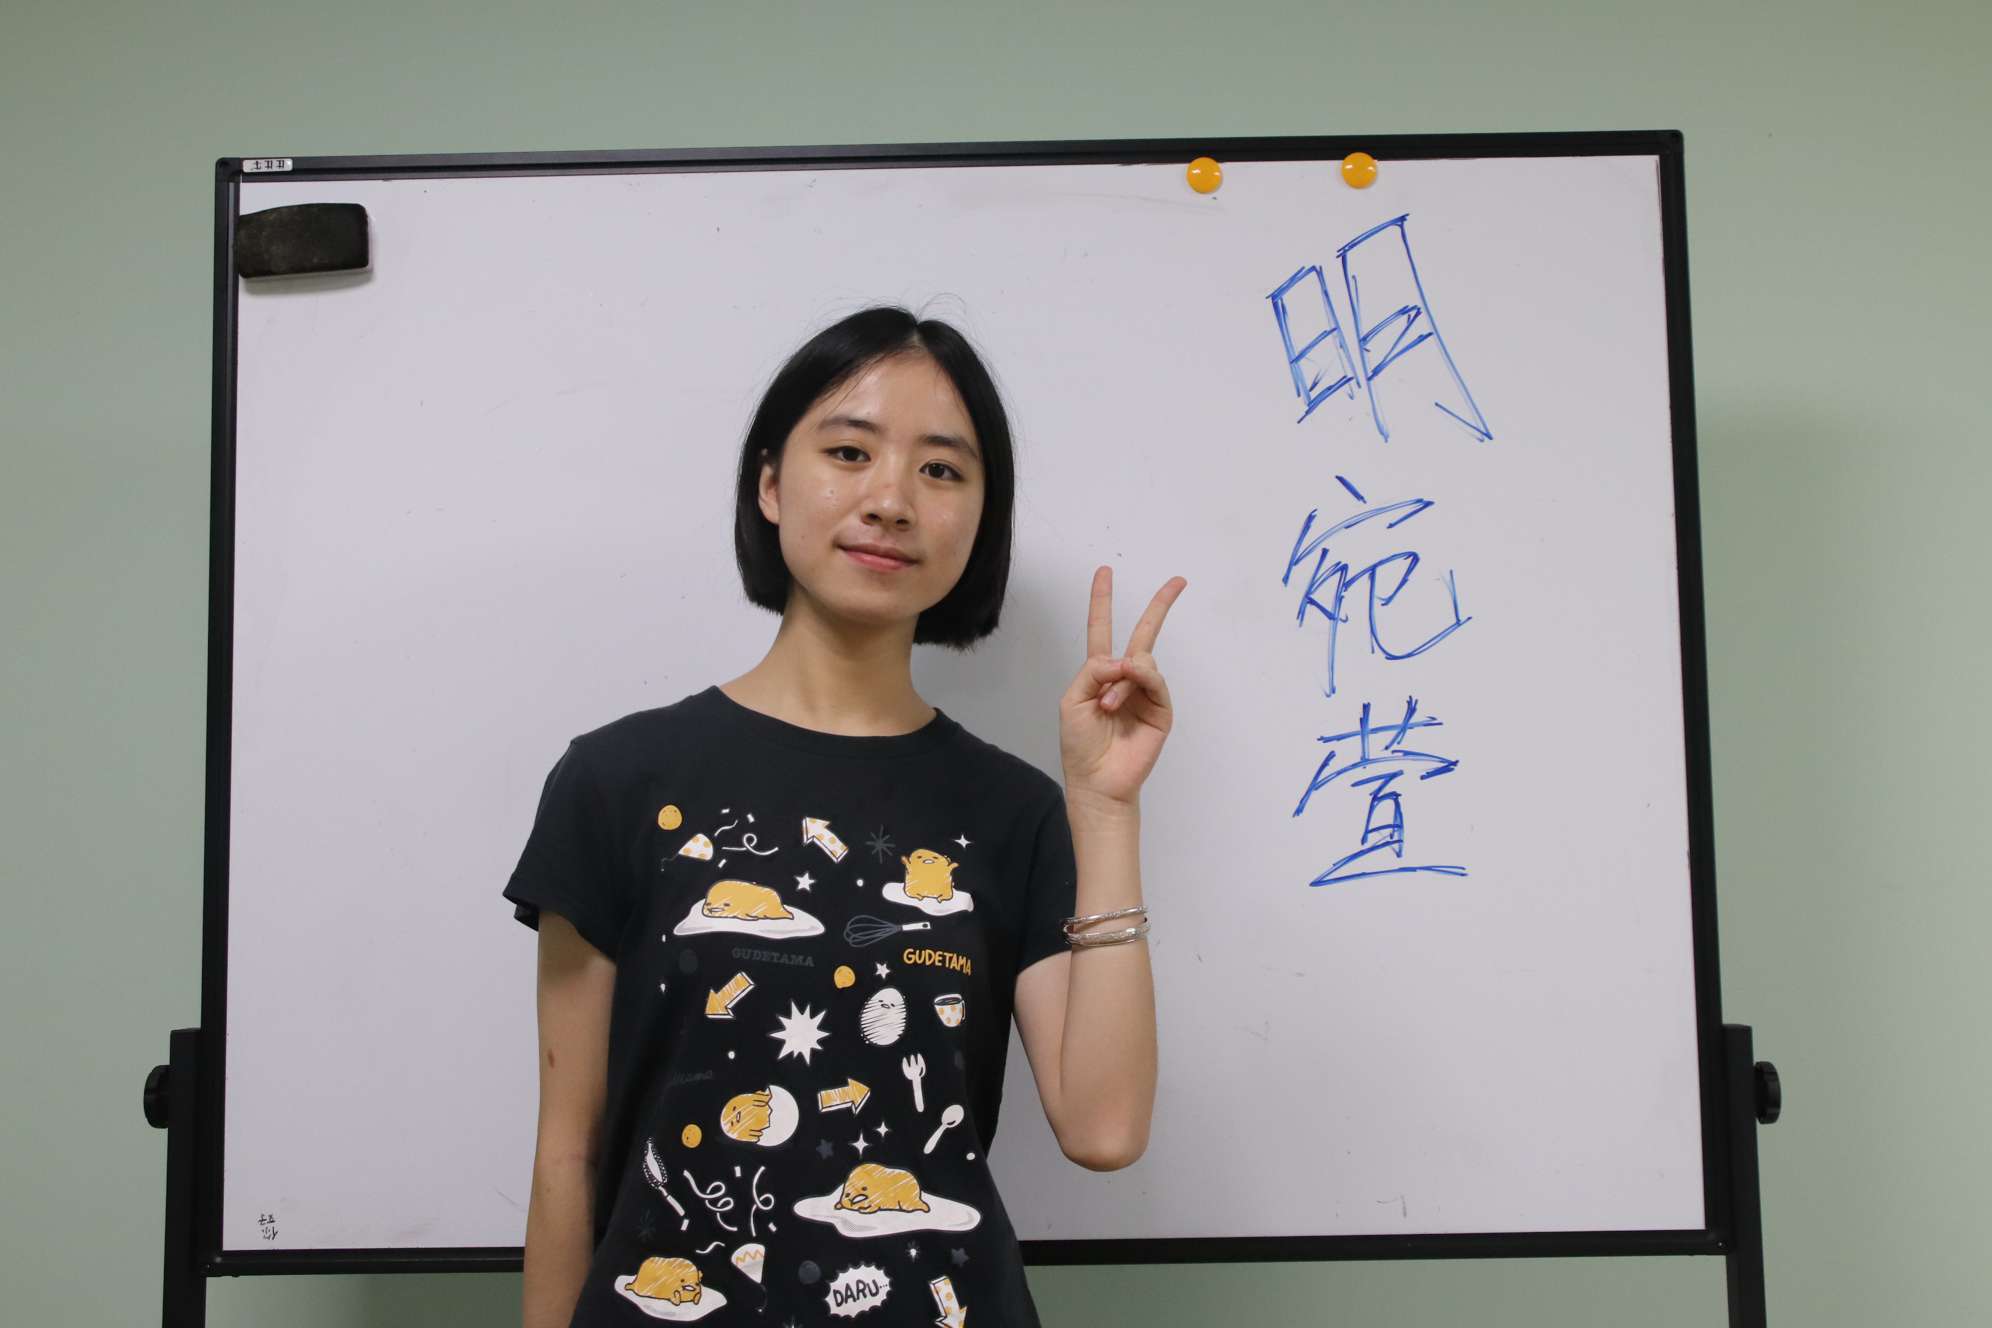 明宛萱
GUDETAMA
GUDETAMA
DARU…